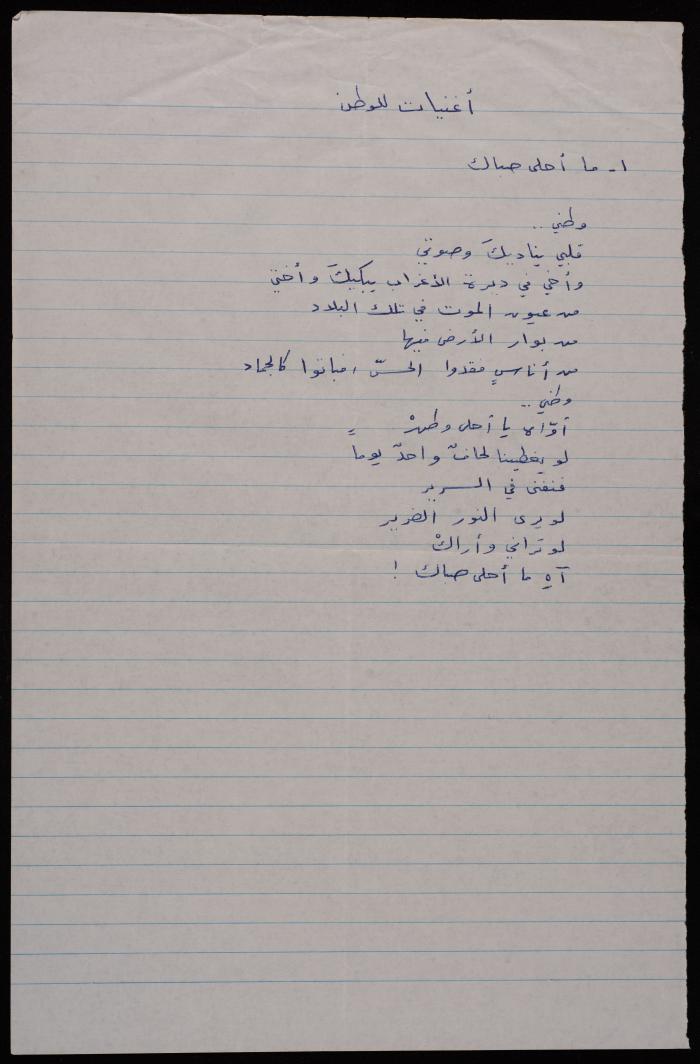 أغنيات للوطن
١- ما أحلى صباك
وطني ..
قلبي يناديكَ وصوتي
وأخي في ديرة الأغراب يبكيكَ وأختي
من عيون الموت في تلك البلاد
من بوار الأرض فيها
من أناسٍ فقدوا الحسّ ، فباتوا كالجماد
وطني ..
أوّاه يا أحلى وطنْ
لو يغطينا لحافٌ واحدٌ يوما
فنغفى في السرير
لو يرى النور الضرير
لو تراني وأراكْ
آهِ ما أحلى صباك !